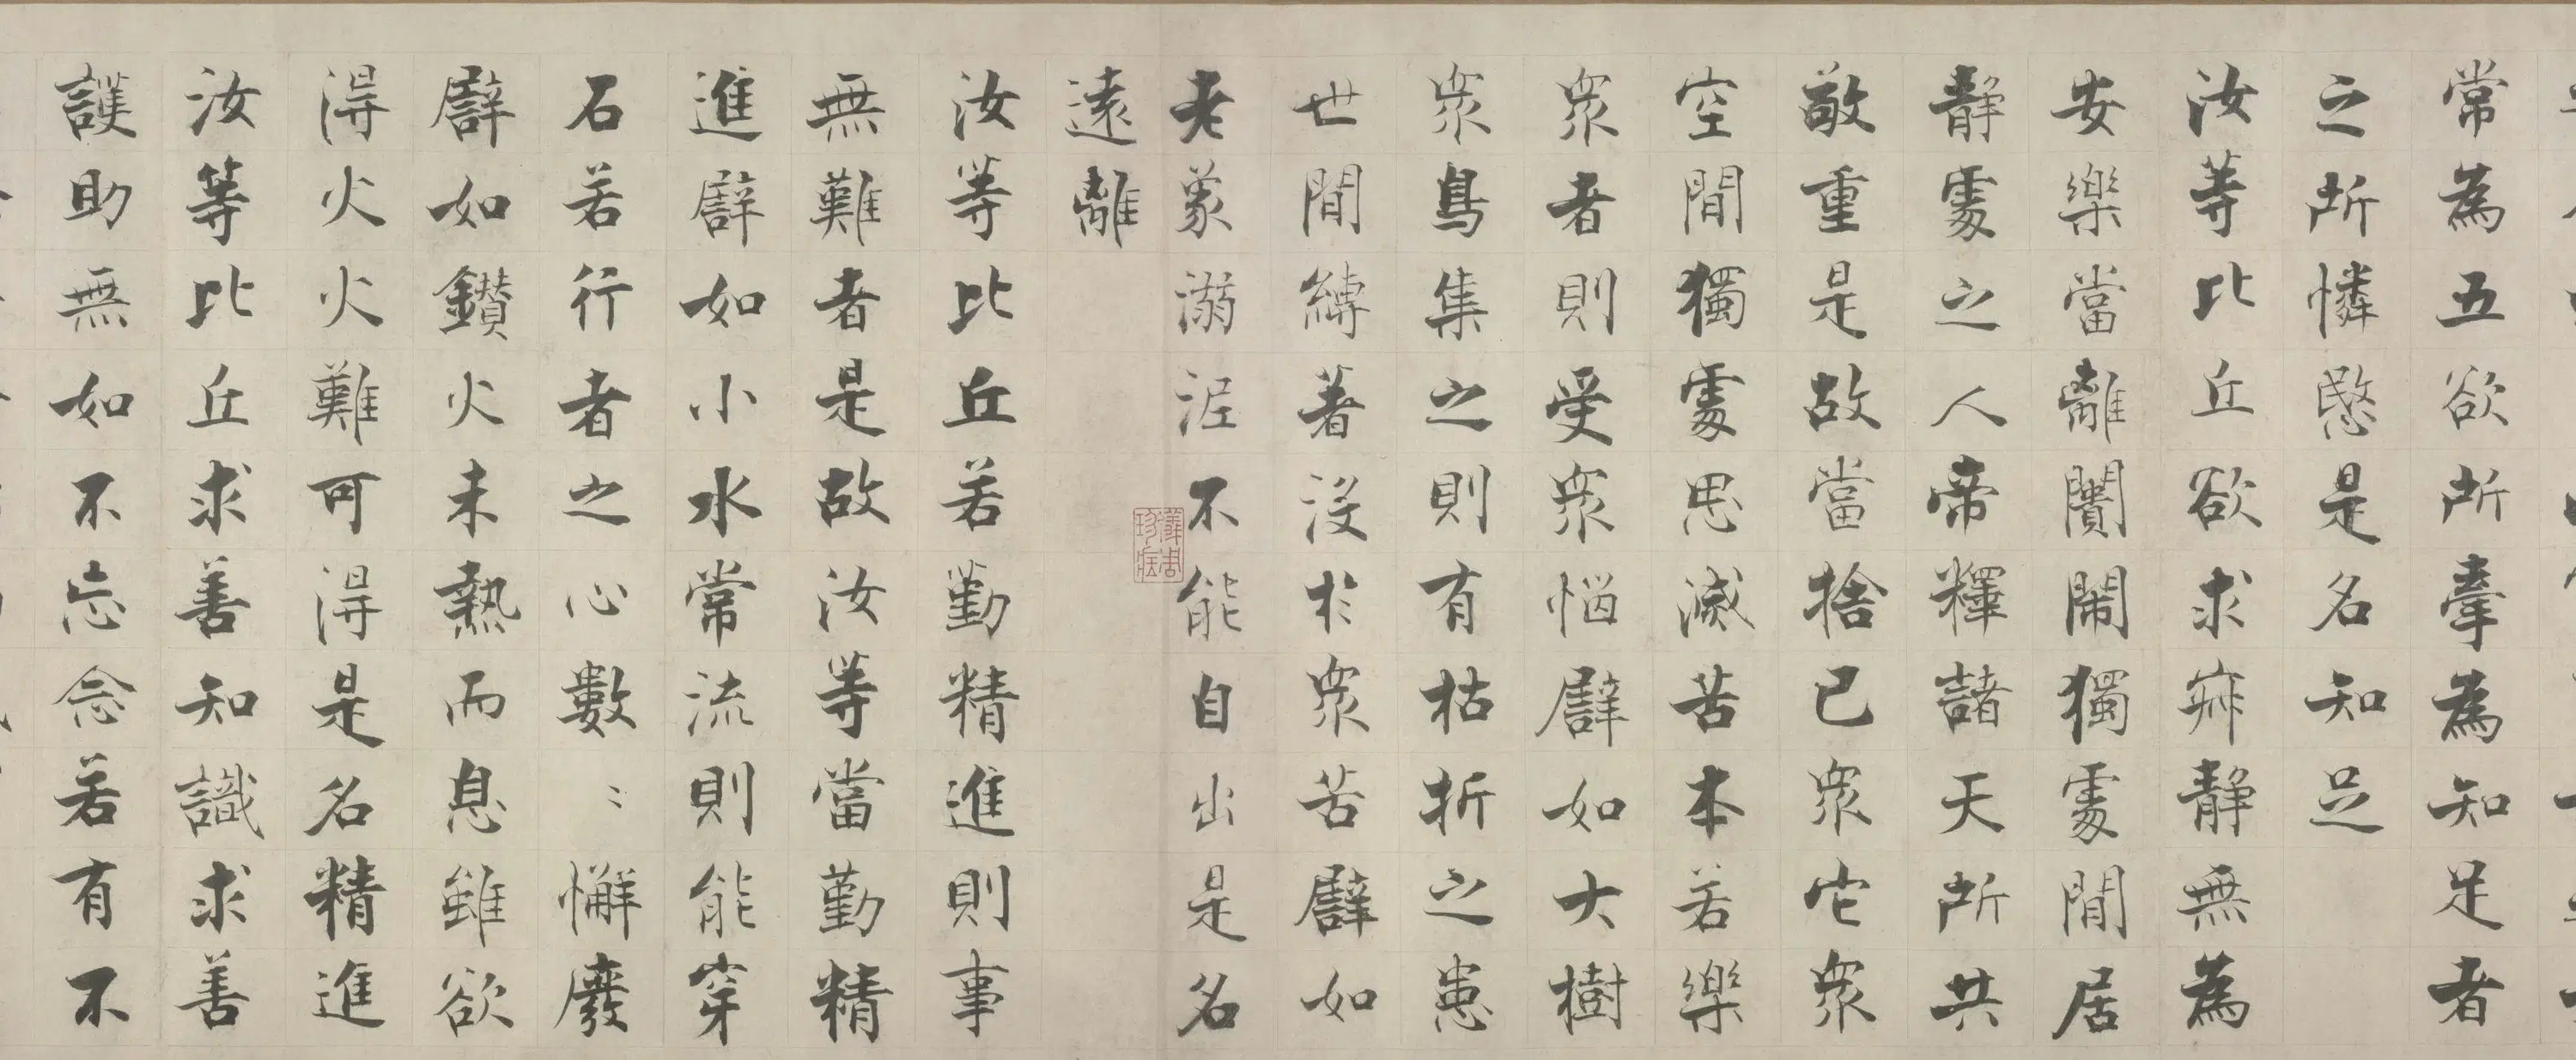 常為五欲所牽為知足者
之所憐愍是名知足
汝等比丘欲求寂静無為
安樂當離闠閙獨處閒居
静處之人帝釋諸天所共
敬重是故當捨己衆它衆
空閒獨處思滅苦本若樂
衆者則受衆惱譬如大樹
衆鳥集之則有枯折之患
世間縛著沒於衆苦譬如
老象溺泥不能自出是名
遠離
汝等比丘若勤精進則事
無難者是故汝等當勤精
進譬如小水常流則能穿
石若行者之心數〻懈廢
譬如鑽火未熱而息雖欲
得火火難可得是名精進
汝等比丘求善知識求善
護助無如不忘念若有不